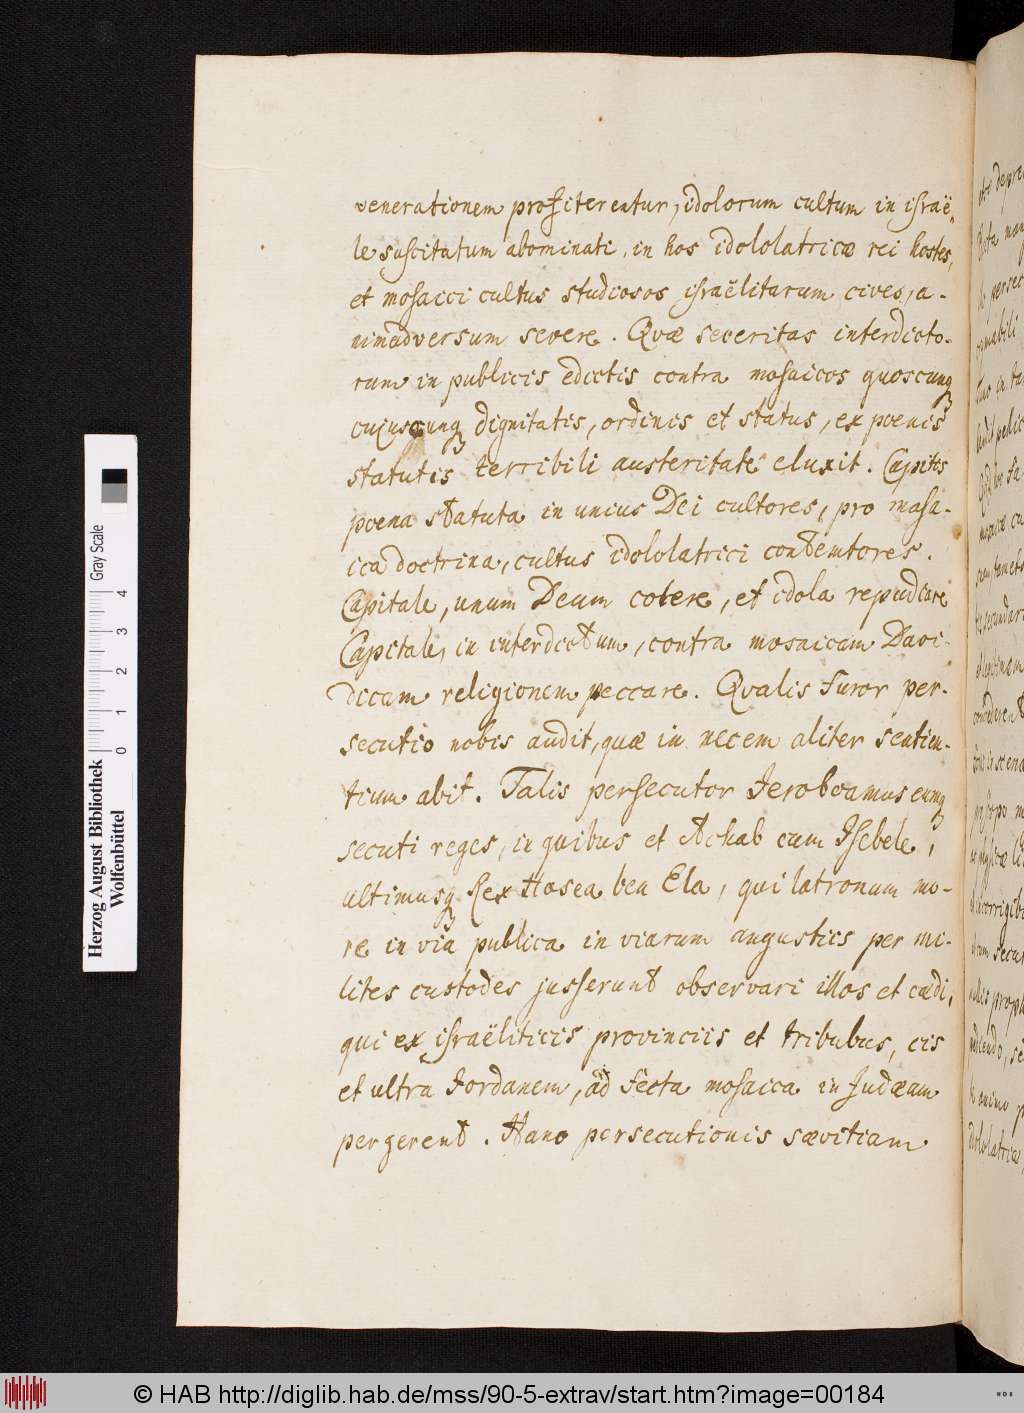 venerationem profiterentur, idolorum cultum in israë-
le suscitatum abominati, in hos idololatricæ rei hostes,
et mosaici cultus studiosos israëlitarum cives, a-
nimadversum severe. Quæ severitas interdicto-
rum in publicis edictis contra mosaicos quoscunq
cujuscunq dignitatis, ordinis et status, ex poenis
statutis terribili austeritate eluxit. Capitis
poena statuta in unius Dei cultores, pro mosa-
ica doctrina, cultus idololatrici contemtores.
Capitale, unum Deum colere, et idola repudiare
Capitale, in interdictum, contra mosaicam Davi-
dicam religionem peccare. Qualis furor per-
secutio nobis audit, quæ in necem aliter sentien-
tium abit. Talis persecutor Jeroboamus eumq
secuti reges, in quibus et Achab cum Isebele,
ultimusq Rex Hosea ben Ela, qui latronum mo-
re in via publica in viarum angustiis per mi-
lites custodes jusserunt observari illos et cædi,
qui ex israëliticis provinciis et tribubus, cis
et ultra Jordanem, ad secta mosaica in Judæam
pergerent. Hanc persecutionis sævitiam
Herzog August Bibliothek
Wolfenbüttel
Gray Scale
0 1 2 3 4
© HAB http://diglib.hab.de/mss/90-5-extrav/start.htm?image=00184